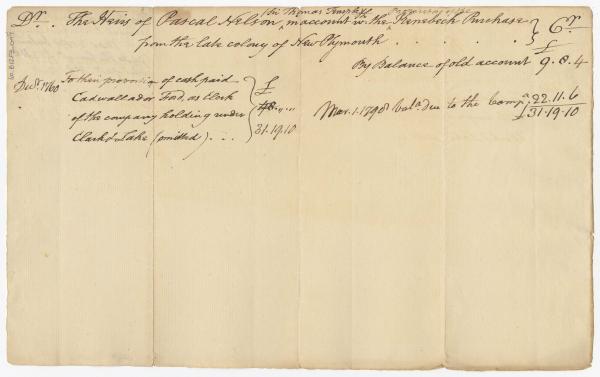 Sir Thomas Temple &
Dr. The Heirs of Pascal Nelson, in account wth. the Kennebeck Purchase } Cr.
from the late colony of New Plymouth . . . . . £
By Balance of old account 9.8.4
Decr. 1760 To their proportion of cash paid £
Cadwallador Ford, as Clerk
of the company holding under
Clark & Lake (omitted) . . . 31.19.10
Mar. 1. 1790 bala. due to the Compa. 22.11.6
£31.19.10